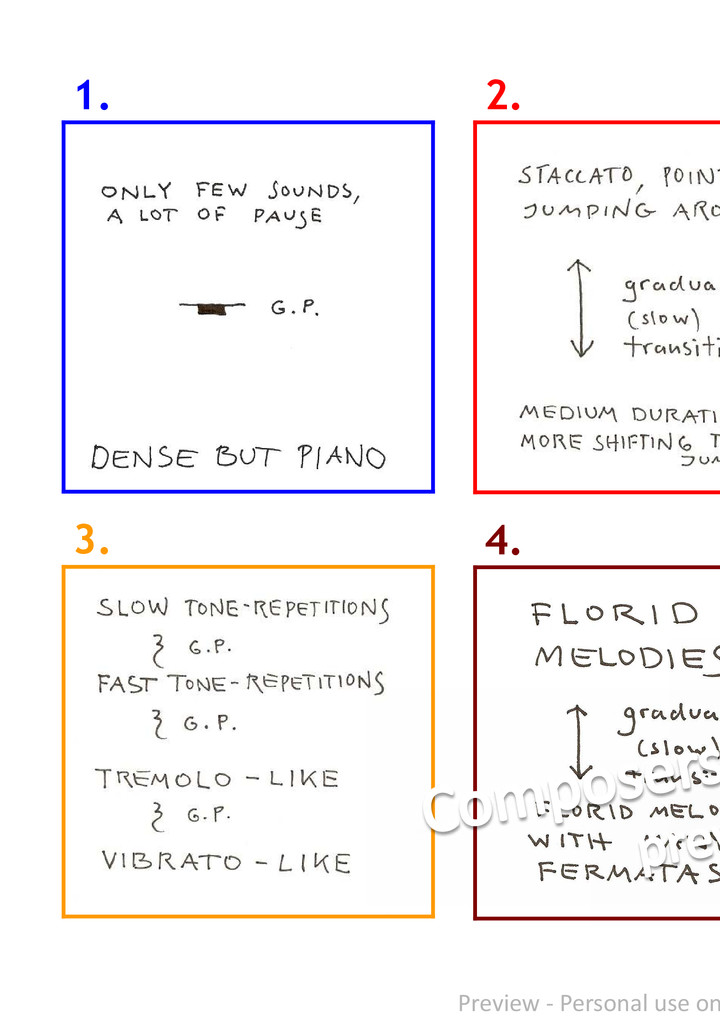 1.
ONLY FEW SOUNDS,
A LOT OF PAUSE
G.P.
DENSE BUT PIANO
2.
STACCATO,
JUMPING
(slow)
MEDIUM
MORE SHIFTING
3.
SLOW TONE-REPETITIONS
G.P.
FAST TONE-REPETITIONS
G.P.
TREMOLO - LIKE
G.P.
VIBRATO - LIKE
4.
FLORID
MELODIES
(slow)
FLORID
WITH
FERMATAS
Composers
Preview - Personal use